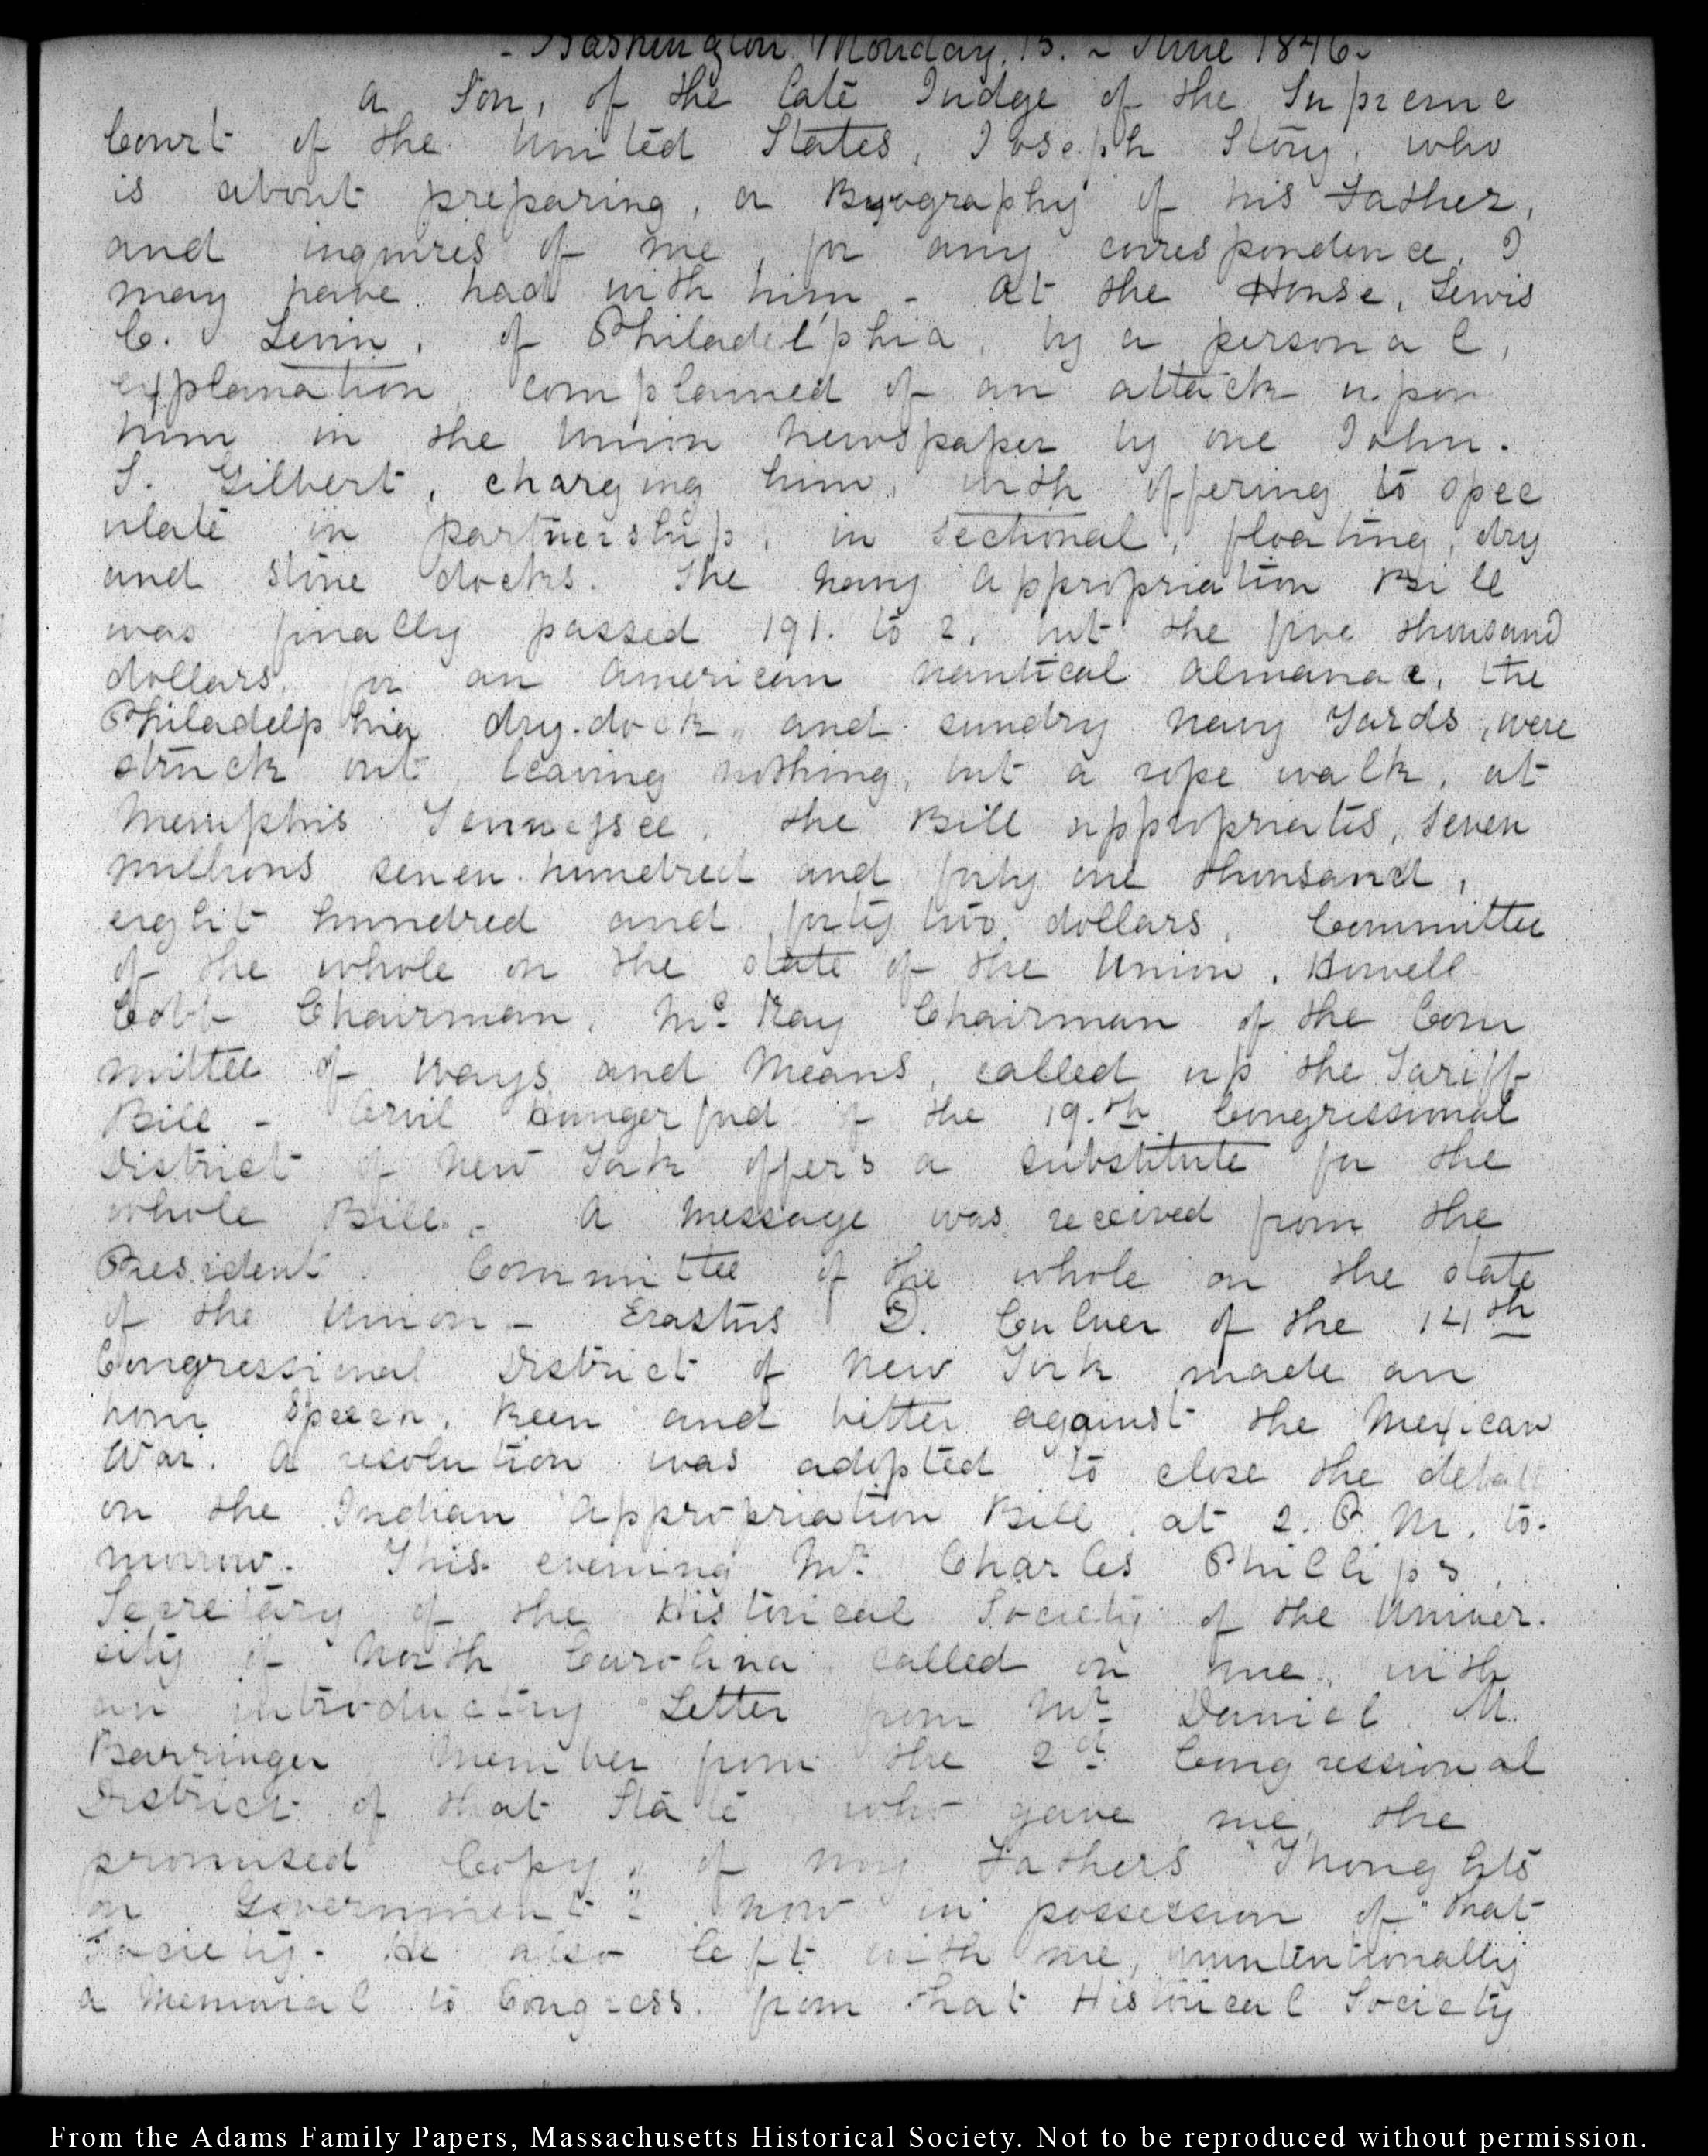 - Washington Monday. 15. - June 1846 -
a Son, of the late Judge of the Supreme
Court of the United States, Joseph Story, who
is about preparing, a Byography of his Father,
and inquires of me, for any correspondence, I
may have had with him - At the House, Lewis
C. Levin, of Philadelphia, by a personal,
explanation, complained of an attack upon
him in the Union Newspaper by one John.
S. Gilbert, charging him, with offering to spec
ulate in partnership, in sectional, floating, dry
and stone docks. The Navy Appropriation Bill
was finally passed 191. to 2. but the five thousand
dollars, for an American Nautical Almanac, the
Philadelphia dry-dock, and sundry Navy Yards, were
struck out, leaving nothing, but a rope walk, at
Memphis Tennessee. The Bill appropriates, seven
millions seven hundred and forty one thousand,
eight hundred and forty two dollars. Committee
of the whole on the state of the Union. Howell
Cobb Chairman. McKay Chairman of the Com
mittee of Ways and Means, called up the Tariff
Bill - Orvil Hungerford of the 19.th Congressional
District of New York offers a substitute for the
whole Bill. - A Message was received from the
President. Committee of the whole on the state
of the Union - Erastus D. Culver of the 14th
Congressional District of New York made an
hour speech, keen and bitter against the Mexican
War. A resolution was adopted to close the debate
on the Indian Appropriation Bill, at 2. P. M. to-
morrow. This evening Mr. Charles Phillips,
Secretary of the Historical Society of the Univer-
sity of North Carolina called on me, with
an introductory Letter from Mr. Daniel M.
Barringer Member from the 2d. Congressional
District of that State who gave me, the
promised Copy, of my Fathers "Thoughts
on Government" now in possession of that
Society. He also left with me, unintentionally
a Memorial to Congress. from that Historical Society
From the Adams Family Papers, Massachusetts Historical Society. Not to be reproduced without permission.